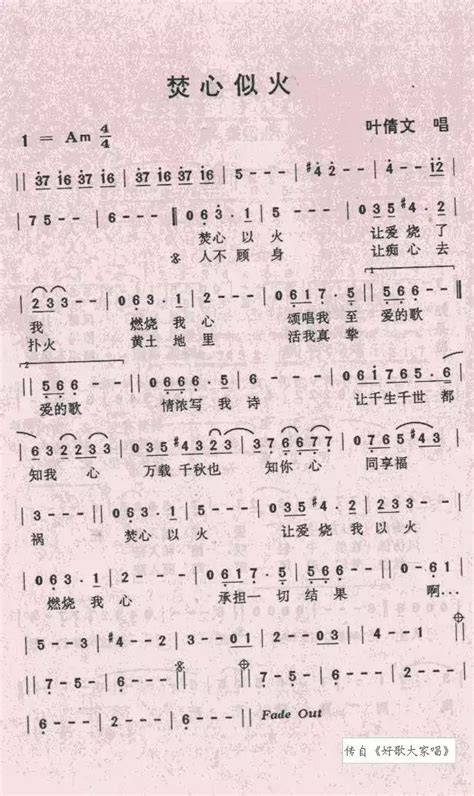 焚心似火
1 = Am 4/4
叶倩文 唱
‖ 37 i6 37 i6 | 37 i6 37 i6 | 5 - - - | #4 - - 4 | (12) - - -
| 75 - - | 6 - - - ‖ 0 6 3 . 1 | 5 - - - | 0 3 5 #4 . 2 |
焚心以火 让爱烧了
𝄋 人不顾身 让痴心去
1
| 2 3 3 - - | 0 6 3 . 1 | 2 - - - | 0 6 1 7 . 5 | 5 6 6 - - |
我 燃烧我心 颂唱我至 爱的歌
扑火 黄土地里 活我真挚
2
‖ 5 6 6 - - | 0 6 3 . 1 | 2 - - - | 0 6 i 7 6 5 . 6 |
爱的歌 情浓写我诗 让千生千世都
知我心 万载千秋也 知你心 同享福
| 3 - - - ‖ 0 6 3 . 1 | 5 - - - | 0 3 5 #4 . 2 | 2 3 3 - - |
祸 焚心以火 让爱烧我以火
| 0 6 3 . 1 | 2 - - - | 0 6 1 7 . 5 | 5 6 6 - - ‖ 0 - 6 1 |
燃烧我心 承担一切结果 啊...
| 5 - - 2 | #4 - - 2 | 3 - - - | 3 - - 0 1 ‖
‖ 7 - 5 - | 6 - - - | 7 - 5 - | 6 - - - |
‖ Fade Out
传自《好歌大家唱》